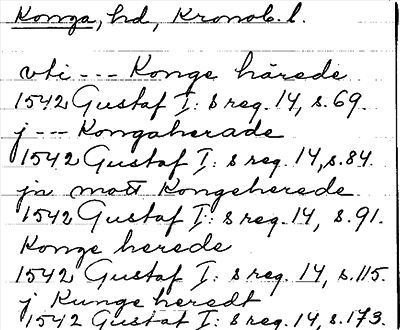 Konga, hd, Kronob. l.
vti --- Konge härede
1542 Gustaf I:s reg. 14, s. 69.
j --- Kongaherade
1542 Gustaf I:s reg. 14, s. 84.
ja mott Kongeherede
1542 Gustaf I:s reg. 14, s. 91.
Konge herede
1542 Gustaf I:s reg. 14, s. 115.
j Kunge heredt
1542 Gustaf I:s reg. 14, s. 173.